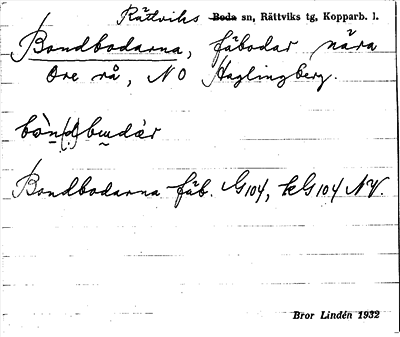 Rättviks Boda sn, Rättviks tg, Kopparb. l.
Bondbodarna, fäbodar nära
Ore rå, NO Haglingberg.
Bondbodarna fäb. G104, kG104 NV.
Bror Lindén 1932